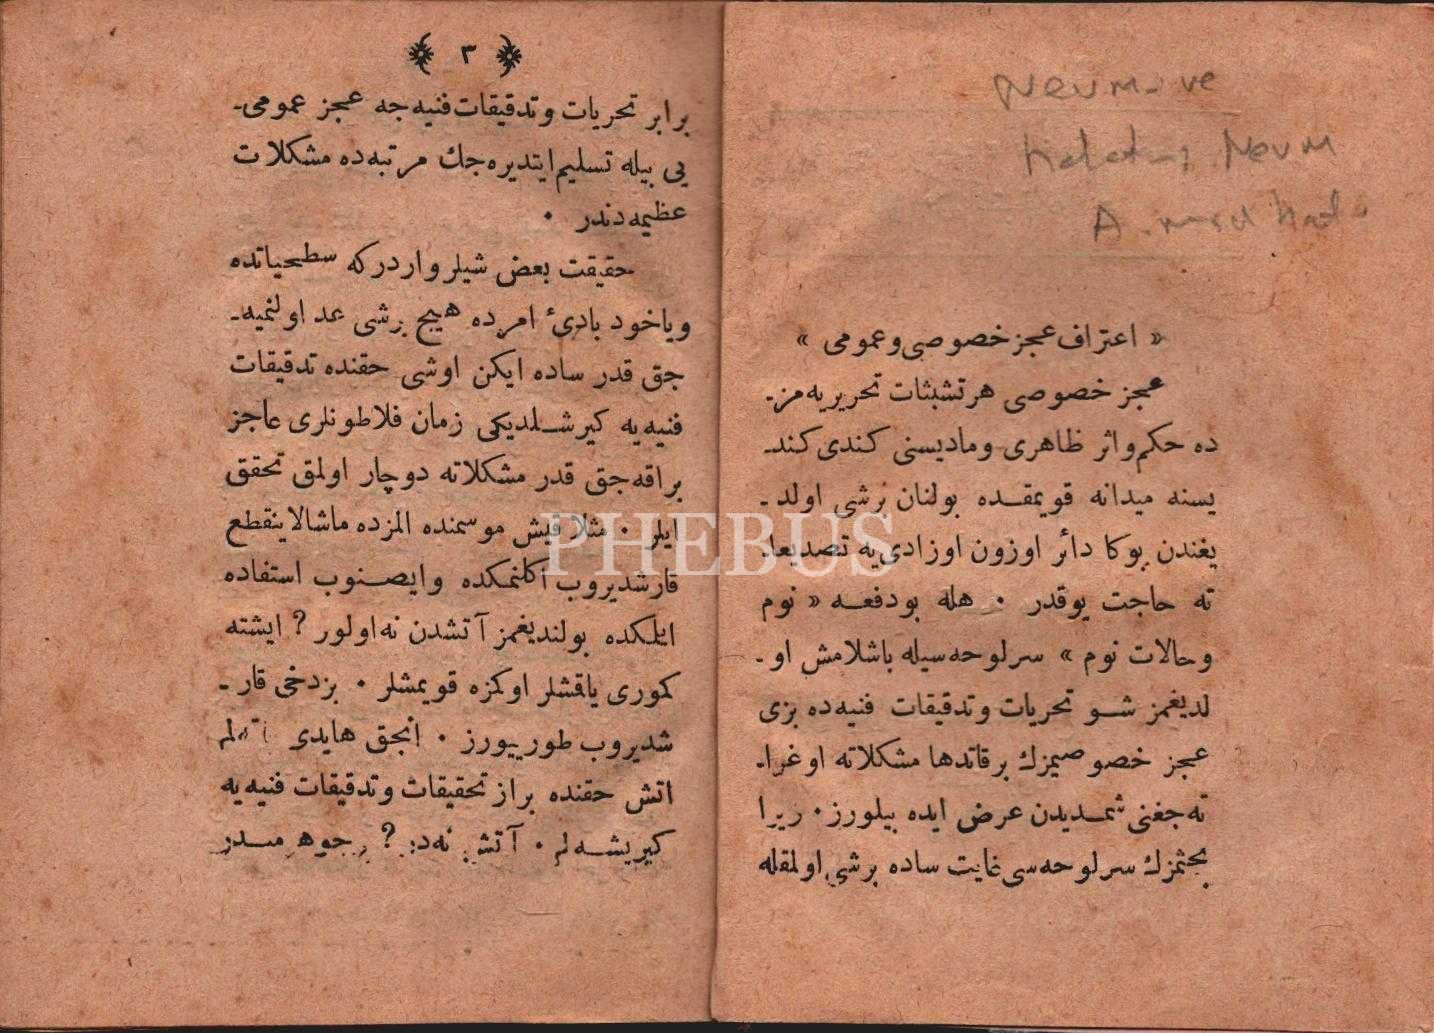 « اعتراف عجز خصوصی و عمومی »
عجز خصوصی هر تشبثات تحریریه مز-
ده حکم و اثر ظاهری و مادیسنی کندی کند-
یسنه میدانه قویمقده بولنان برشی اولد-
یغندن بوکا دائر اوزون اوزادی یه تصدیعا-
ته حاجت یوقدر . هله بودفعه « نوم
و حالات نوم » سرلوحه سیله باشلامش او-
لدیغمز شو تحریات و تدقیقات فنیه ده بزی
عجز خصوصیمزك برقاتدها مشکلاته اوغرا-
ته جغنی شمدیدن عرض ایده بیلورز . زیرا
بحثمزك سرلوحه سی غایت ساده برشی اولمقله
۳
برابر تحریات و تدقیقات فنیه جه عجز عمومی-
یی بیله تسلیم ایتدیره جك مرتبه ده مشکلات
عظیمه دندر .
حقیقت بعض شیلر واردرکه سطحیاتده
ویاخود بادیٔ امرده هیچ برشی عد اولنمیه-
جق قدر ساده ایکن اوشی حقنده تدقیقات
فنیه یه کیرشلدیکی زمان فلاطونلری عاجز
براقه جق قدر مشکلاته دوچار اولمق تحقق
ایلر . مثلا قیش موسمنده المزده ماشالاینقطع
قارشدیروب اکلنمکده وایصنوب استفاده
ایلکده بولندیغمز آتشدن نه اولور ? ایشته
کموری یاقمشلر اوکمزه قویمشلر . بزدخی قار-
شدیروب طورییورز . انجق هایدی
اتش حقنده براز تحقیقات و تدقیقات فنیه یه
کیریشه لم . آتش نه در ? جوهر میدر
Neum ve
halatı Neum
PHEBUS